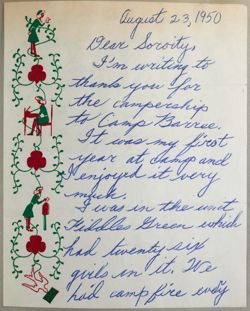 August 23, 1950
Dear Sorority,
I'm writing to
thank you for
the campership
to Camp Barree.
It was my first
year at camp and
I enjoyed it very
much.
I was in the unit
Fiddlers Green which
had twenty six
girls in it. We
had camp fire every